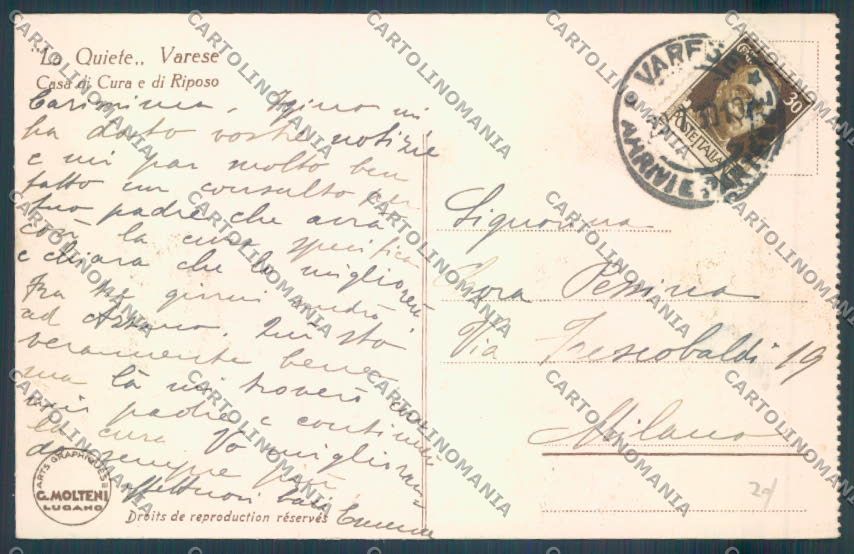 "La Quiete" Varese
Casa di Cura e di Riposo
Carissima, Igino mi
ha dato vostre notizie
e mi par molto ben
fatto un consulto per
tuo padre che avrà
così la cura specifica
e chiara che lo migliorerà
Fra tre giorni andrò
ad Arzano. Qui sto
veramente bene
ma là mi troverò con
mio padre e continuerò
la cura. Va migliorando
da sempre
affettuosi baci
ARTS GRAPHIQUES
G. MOLTENI
LUGANO
Droits de reproduction réservés
VARESE
ARRIVI E PARTENZE
30
POSTE ITALIANE
Signorina
Dora Pessina
Via Frescobaldi 19
Milano
CARTOLINOMANIA